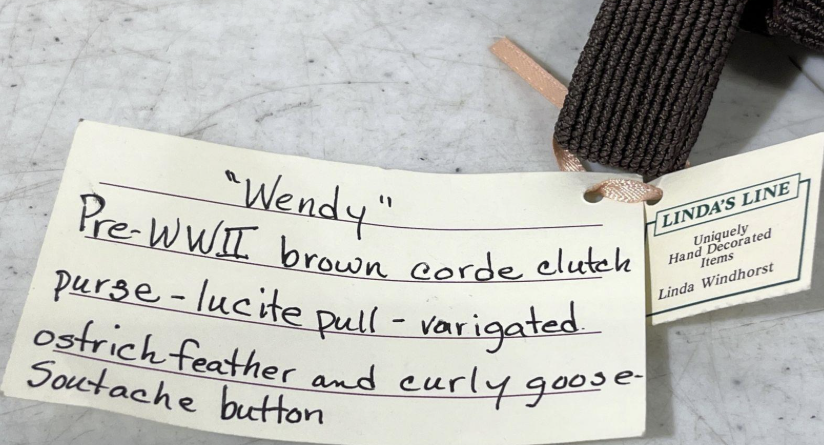 "Wendy"
Pre-WWII brown corde clutch
purse - lucite pull - varigated
ostrich feather and curly goose-
Soutache button
LINDA'S LINE
Uniquely
Hand Decorated
Items
Linda Windhorst